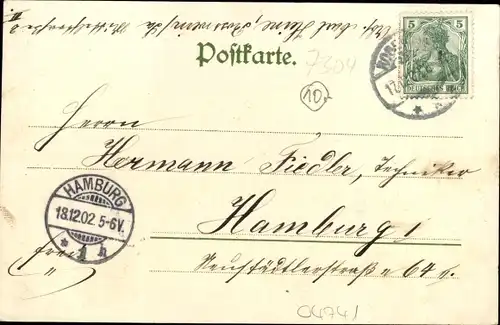 Postkarte.
7304
10.-
5 5
DEUTSCHES REICH
Herrn
Hermann Fiedler, Techniker
Hamburg 1
Neustädterstraße 64
frei
HAMBURG
18.12.02. 5-6V.
* 1 h
04741